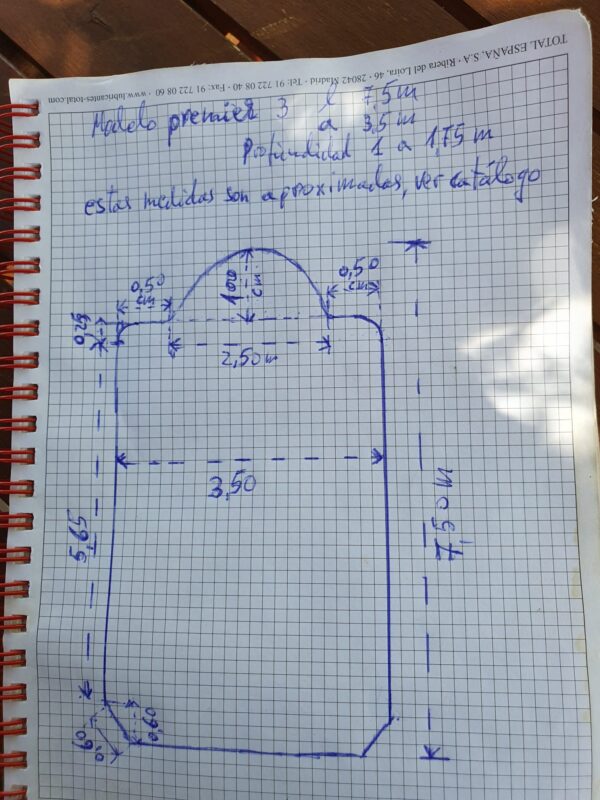 TOTAL ESPAÑA, S.A · Ribera del Loira, 46. 28042 Madrid · Tel: 91 722 08 40 · Fax: 91 722 08 60 · www.lubricantes-total.com
Modelo premier 3 l 7,5 m
a 3,5 m
Profundidad 1 a 1,75 m
estas medidas son aproximadas, ver catálogo
0,50
cm
1,00
cm
0,50
cm
0,25
2,50 m
3,50
5,65
7,50 m
0,60
0,60